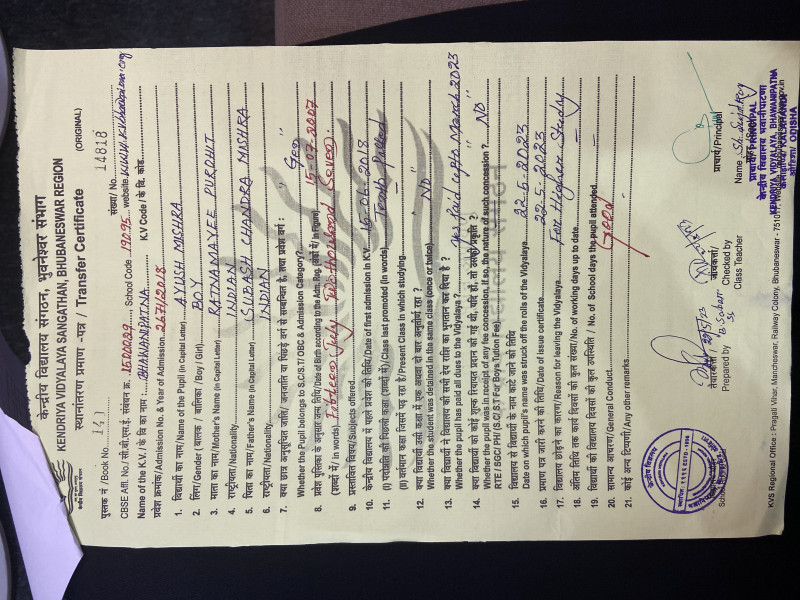 केन्द्रीय विद्यालय संगठन, भुवनेश्वर संभाग
KENDRIYA VIDYALAYA SANGATHAN, BHUBANESWAR REGION
स्थानांतरण प्रमाण -पत्र / Transfer Certificate
(ORIGINAL)
पुस्तक नं /Book No. 141 संख्या/ No. 14018
CBSE Affl. No./ सी.बी.एस.ई. संबंधन क्र. 1500029 School Code 19095 website
Name of the K.V. / के वि का नाम : BHAWANIPATNA K.V Code / के वि. कोड
प्रवेश क्रमांक/Admission No. & Year of Admission 2671/2018
1. विद्यार्थी का नाम/Name of the Pupil (in Capital Letter) AYUSH MISHRA
2. लिंग/Gender (बालक / बालिका / Boy / Girl) BOY
3. माता का नाम/Mother's Name (in Capital Letter) RATNAMAYEE PUROHIT
4. राष्ट्रीयता/Nationality INDIAN
5. पिता का नाम/Father's Name (in Capital Letter) SUBASH CHANDRA MISHRA
6. राष्ट्रीयता/Nationality INDIAN
7. क्या छात्र अनुसूचित जाति/ जनजाति या पिछड़े वर्ग से सम्बन्धित है, तथा प्रवेश वर्ग :
Whether the Pupil belongs to S.C/S.T/ OBC & Admission Category? Gen
8. प्रवेश पुस्तिका के अनुसार जन्म तिथि/Date of Birth according to the Adm. Reg. (अंकों में/ in Figure) 15-07-2007
(शब्दों में/ in words) Fifteen July Two thousand Seven
9. प्रस्तावित विषय/Subjects offered
10. केन्द्रीय विद्यालय में पहले प्रवेश की तिथि/Date of first admission in K.V. 15-06-2018
11. (i) पदोन्नति की पिछली कक्षा (शब्दों में)/Class last promoted (in words) Tenth Passed
(ii) वर्तमान कक्षा जिसमें पढ़ रहा है/Present Class in which studying
12. क्या विद्यार्थी उसी कक्षा में एक अथवा दो बार अनुत्तीर्ण रहा ?
Whether the student was detained in the same class (once or twice) NO
13. क्या विद्यार्थी ने विद्यालय को सभी देय राशि का भुगतान कर दिया है ?
Whether the pupil has paid all dues to the Vidyalaya ? Yes Paid upto March 2023
14. क्या विद्यार्थी को कोई शुल्क रियायत प्रदान की गई थी, यदि हो, तो उसकी प्रकृति ? "
Whether the pupil was in receipt of any fee concession, if so, the nature of such concession ? NO
RTE / SGC/ PH/ (S.C/ S.T For Boys Tution Fee)
15. विद्यालय से विद्यार्थी के नाम काटे जाने की तिथि
Date on which pupil's name was struck off the rolls of the Vidyalaya 22.5.2023
16. प्रमाण पत्र जारी करने की तिथि/Date of issue certificate 22.5.2023
17. विद्यालय छोड़ने का कारण/Reason for leaving the Vidyalaya For Higher Study
18. अंतिम तिथि तक कार्य दिवसों की कुल संख्या/No. of working days up to date
19. विद्यार्थी की विद्यालय दिवसों की कुल उपस्थिति / No. of School days the pupil attended
20. सामान्य आचरण/General Conduct Good
21. कोई अन्य टिप्पणी/Any other remarks
तैयारकर्ता
Prepared by
जांचकर्ता
Checked by
Class Teacher
प्राचार्य/Principal
Name
प्राचार्य/PRINCIPAL
केन्द्रीय विद्यालय भवानीपाटणा
KENDRIYA VIDYALAYA, BHAWANIPATNA
ओडिशा/ ODISHA
KVS Regional Office : Pragati Vihar, Mancheswar, Railway Colony, Bhubaneswar -